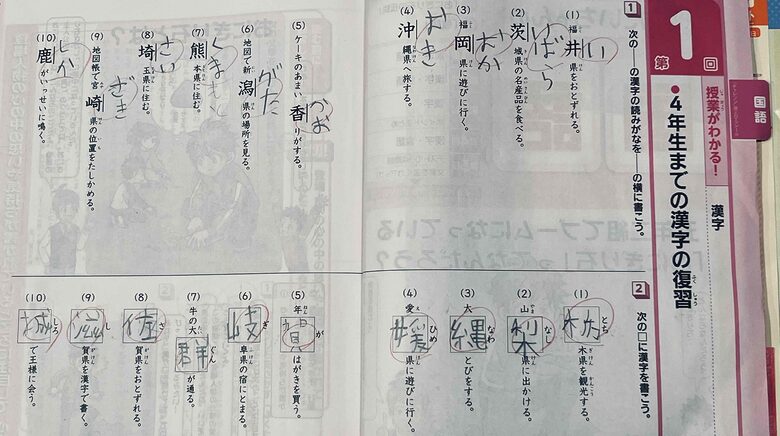 国語
第1回
授業がわかる！
漢字
●4年生までの漢字の復習
1 次の──の漢字の読みがなを──の横に書こう。
(1) 福井県をおとずれる。
い
(2) 茨城県の名産品を食べる。
いばら
(3) 福岡県に遊びに行く。
おか
(4) 沖縄県へ旅する。
おき
(5) ケーキのあまい香りがする。
かお
(6) 地図で新潟県の場所を見る。
がた
(7) 熊本県に住む。
くまもと
(8) 埼玉県に住む。
さい
(9) 地図帳で宮崎県の位置をたしかめる。
ざき
(10) 鹿がいっせいに鳴く。
しか
2 次の□に漢字を書こう。
(1) 栃木県を観光する。
とち
(2) 山梨県に出かける。
なし
(3) 大縄とびをする。
なわ
(4) 愛媛県に遊びに行く。
ひめ
(5) 年賀はがきを買う。
が
(6) 岐阜県の宿にとまる。
ぎ
(7) 牛の大群が通る。
ぐん
(8) 佐賀県をおとずれる。
さ
(9) 滋賀県を漢字で書く。
し
(10) 城で王様に会う。
しろ